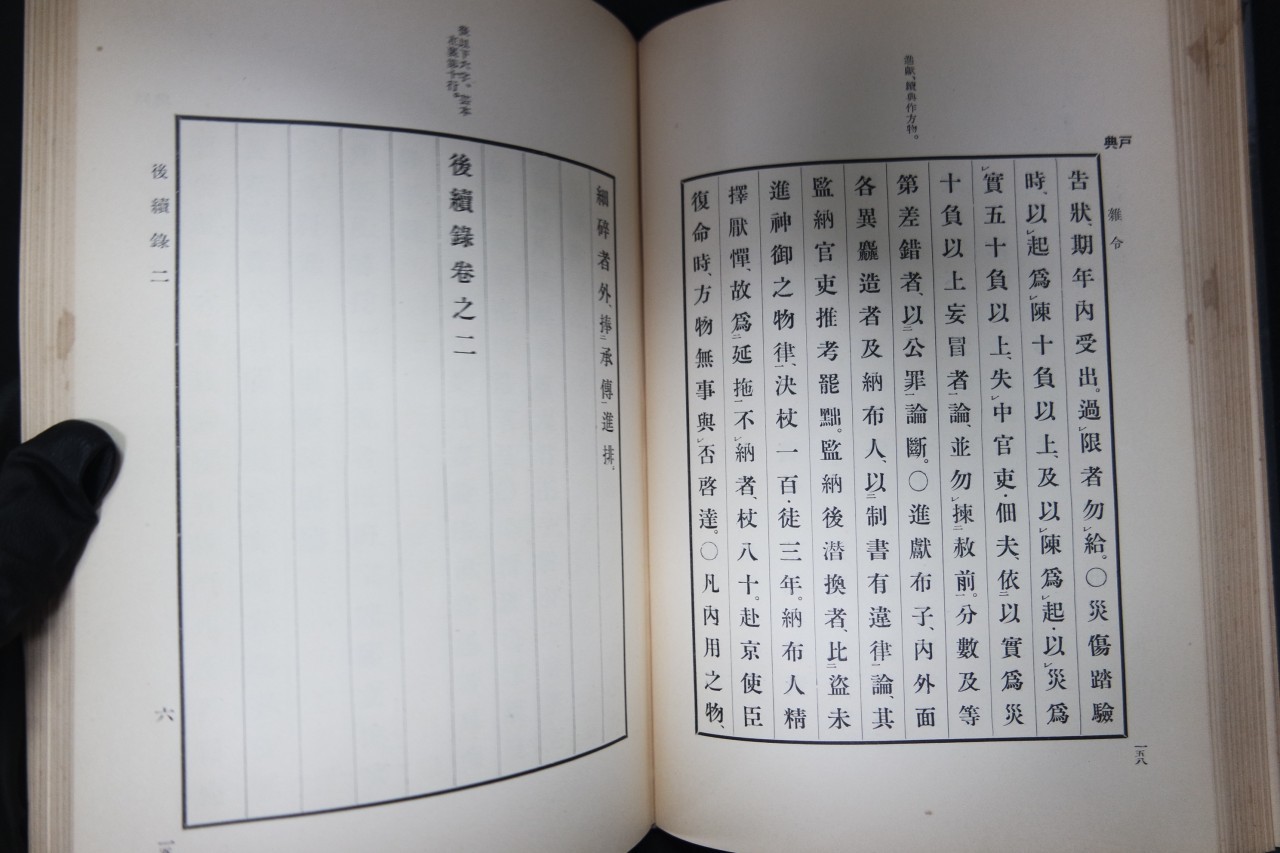 進獻、續典作方物。
戶典
雜令
告狀、期年內受出。過限者勿給。〇災傷踏驗
時、以起爲陳十負以上、及以陳爲起・以災爲
實五十負以上、失中官吏・佃夫、依以實爲災
十負以上妄冒者論、並勿揀赦前。分數及等
第差錯者、以公罪論斷。〇進獻布子、內外面
各異麤造者及納布人、以制書有違律論、其
監納官吏推考罷黜。監納後潛換者、比盜未
進神御之物律、決杖一百・徒三年。納布人精
擇厭憚、故爲延拖不納者、杖八十。赴京使臣
復命時、方物無事與否啓達。〇凡內用之物、
一五八
細碎者外、捧承傳進排。
後續錄卷之二
後續錄二
六